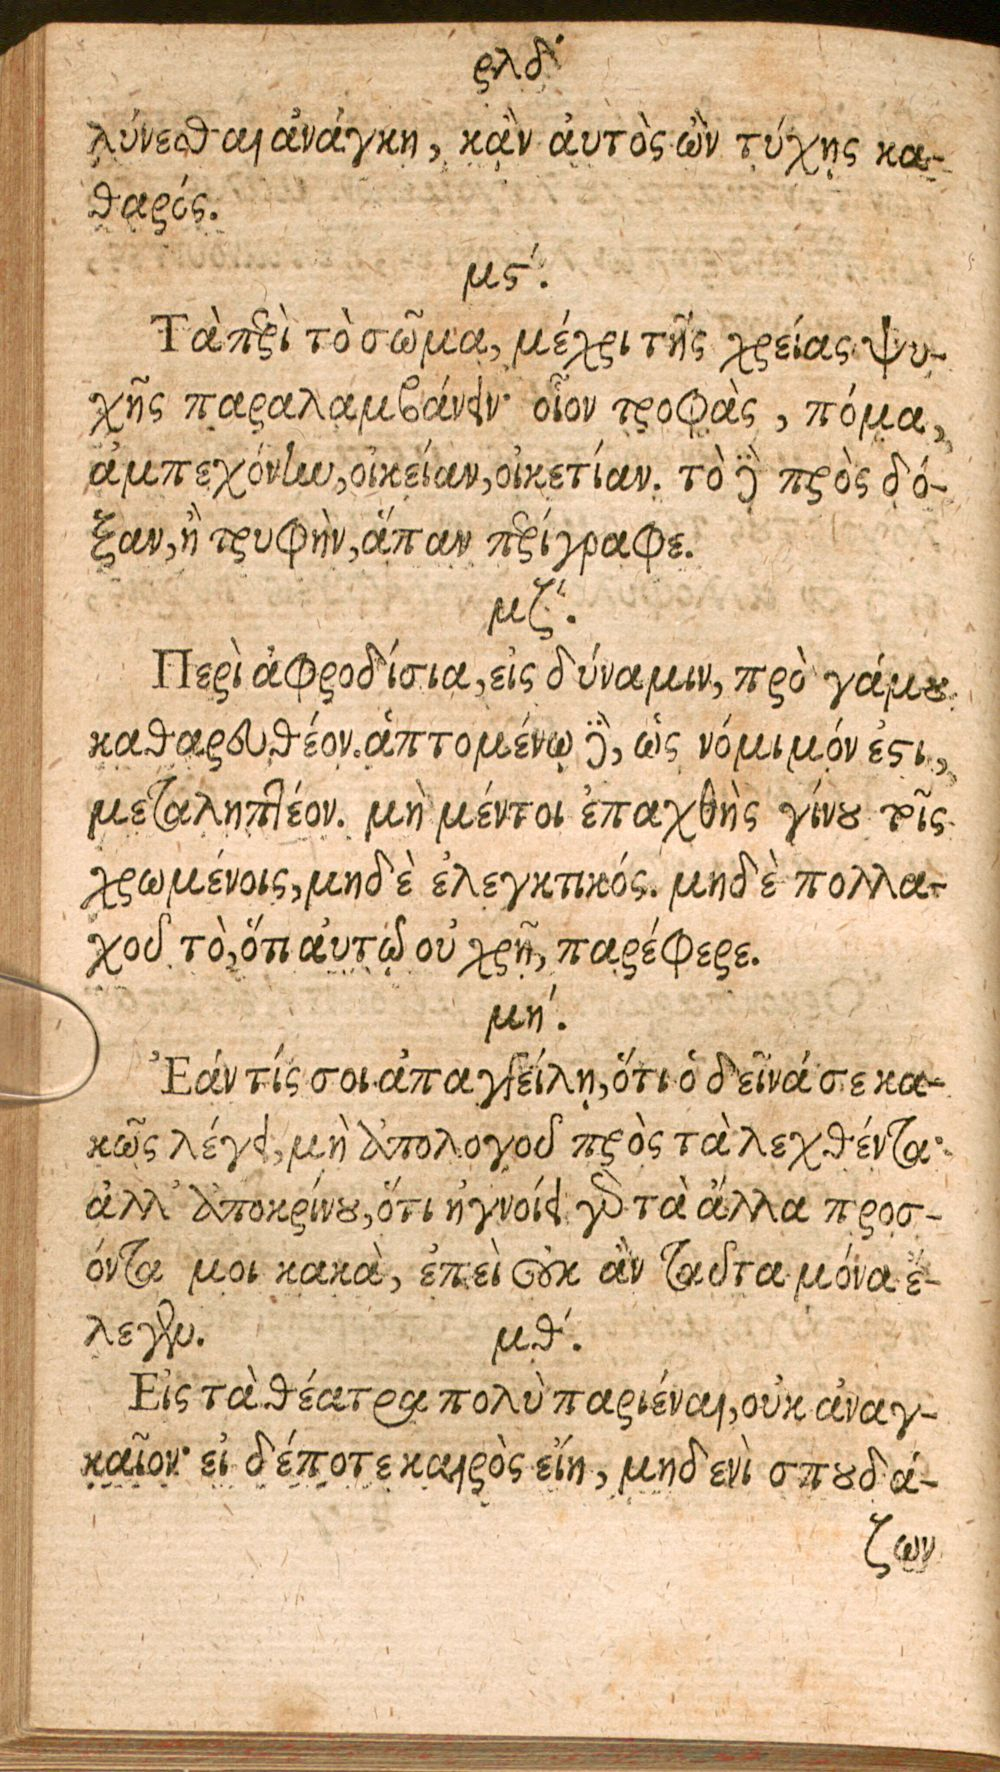 ρλδ'
λύνεσθαι ἀνάγκη, κἂν ἀυτὸς ὢν τύχης κα-
θαρός.
μς'.
Τὰ περὶ τὸ σῶμα, μέχρι τῆς χρείας ψυ-
χῆς παραλαμβάνειν· οἷον τροφὰς, πόμα,
ἀμπεχόνην, οἰκείαν, οἰκετίαν. τὸ δὲ πρὸς δό-
ξαν, ἢ τρυφὴν, ἅπαν περίγραφε.
μζ'.
Περὶ ἀφροδίσια, εἰς δύναμιν, πρὸ γάμου
καθαρευθέον. ἁπτομένῳ δὲ, ὡς νόμιμόν ἐστι,
μεταληπτέον. μὴ μέντοι ἐπαχθὴς γίνου τοῖς
χρωμένοις, μηδὲ ἐλεγκτικός. μηδὲ πολλα-
χοῦ τὸ, ὅτι ἀυτῷ οὐ χρῇ, παρέφερε.
μη'.
Ἐάν τίς σοι ἀπαγγείλῃ, ὅτι ὁ δεῖνά σε κα-
κῶς λέγει, μὴ ἀπολογοῦ πρὸς τὰ λεχθέντα·
ἀλλ' ἀποκρίνου, ὅτι ἠγνοίει γὰρ τὰ ἄλλα προσ-
όντα μοι κακὰ, ἐπεὶ οὐκ ἂν ταῦτα μόνα ἔ-
λεγεν.
μθ'.
Εἰς τὰ θέατρα πολὺ παριέναι, οὐκ ἀναγ-
καῖον· εἰ δέποτε καιρὸς εἴη, μηδενὶ σπουδά-
ζων